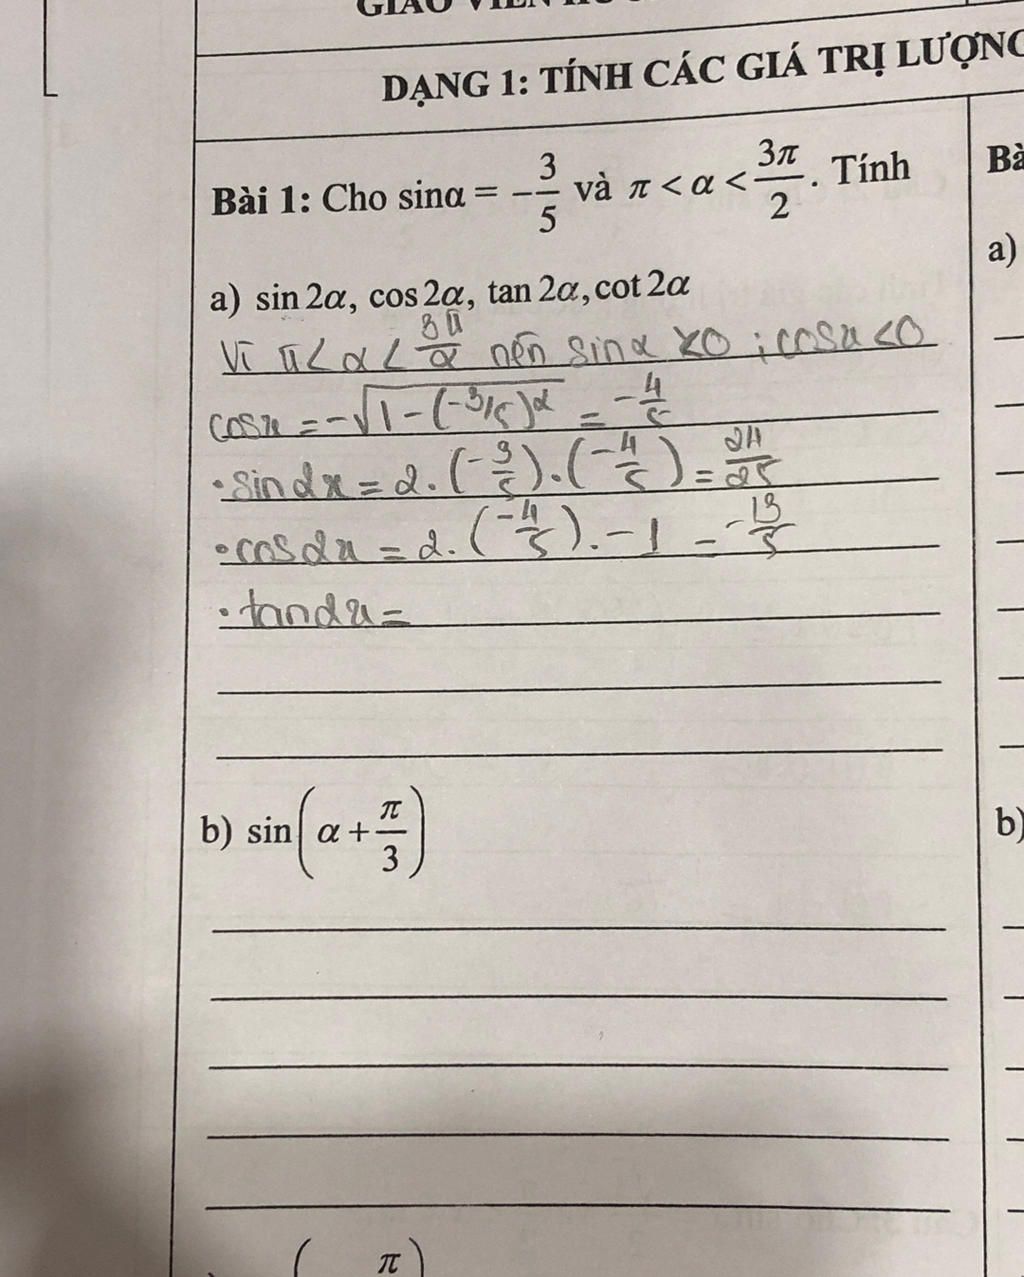 DẠNG 1: TÍNH CÁC GIÁ TRỊ LƯỢNG
Bài 1: Cho sinα = -3/5 và π < α < 3π/2. Tính
a) sin 2α, cos 2α, tan 2α, cot 2α
Vì π < α < 3π/2 nên sin α < 0 ; cosα < 0
cosx = -√(1-(-3/5)²) = -4/5
• sin2x = 2.(-3/5).(-4/5) = 24/25
• cos2x = 2.(-4/5).-1 = -13/5
• tan2x =
b) sin(α + π/3)
Bà
a)
b)
π